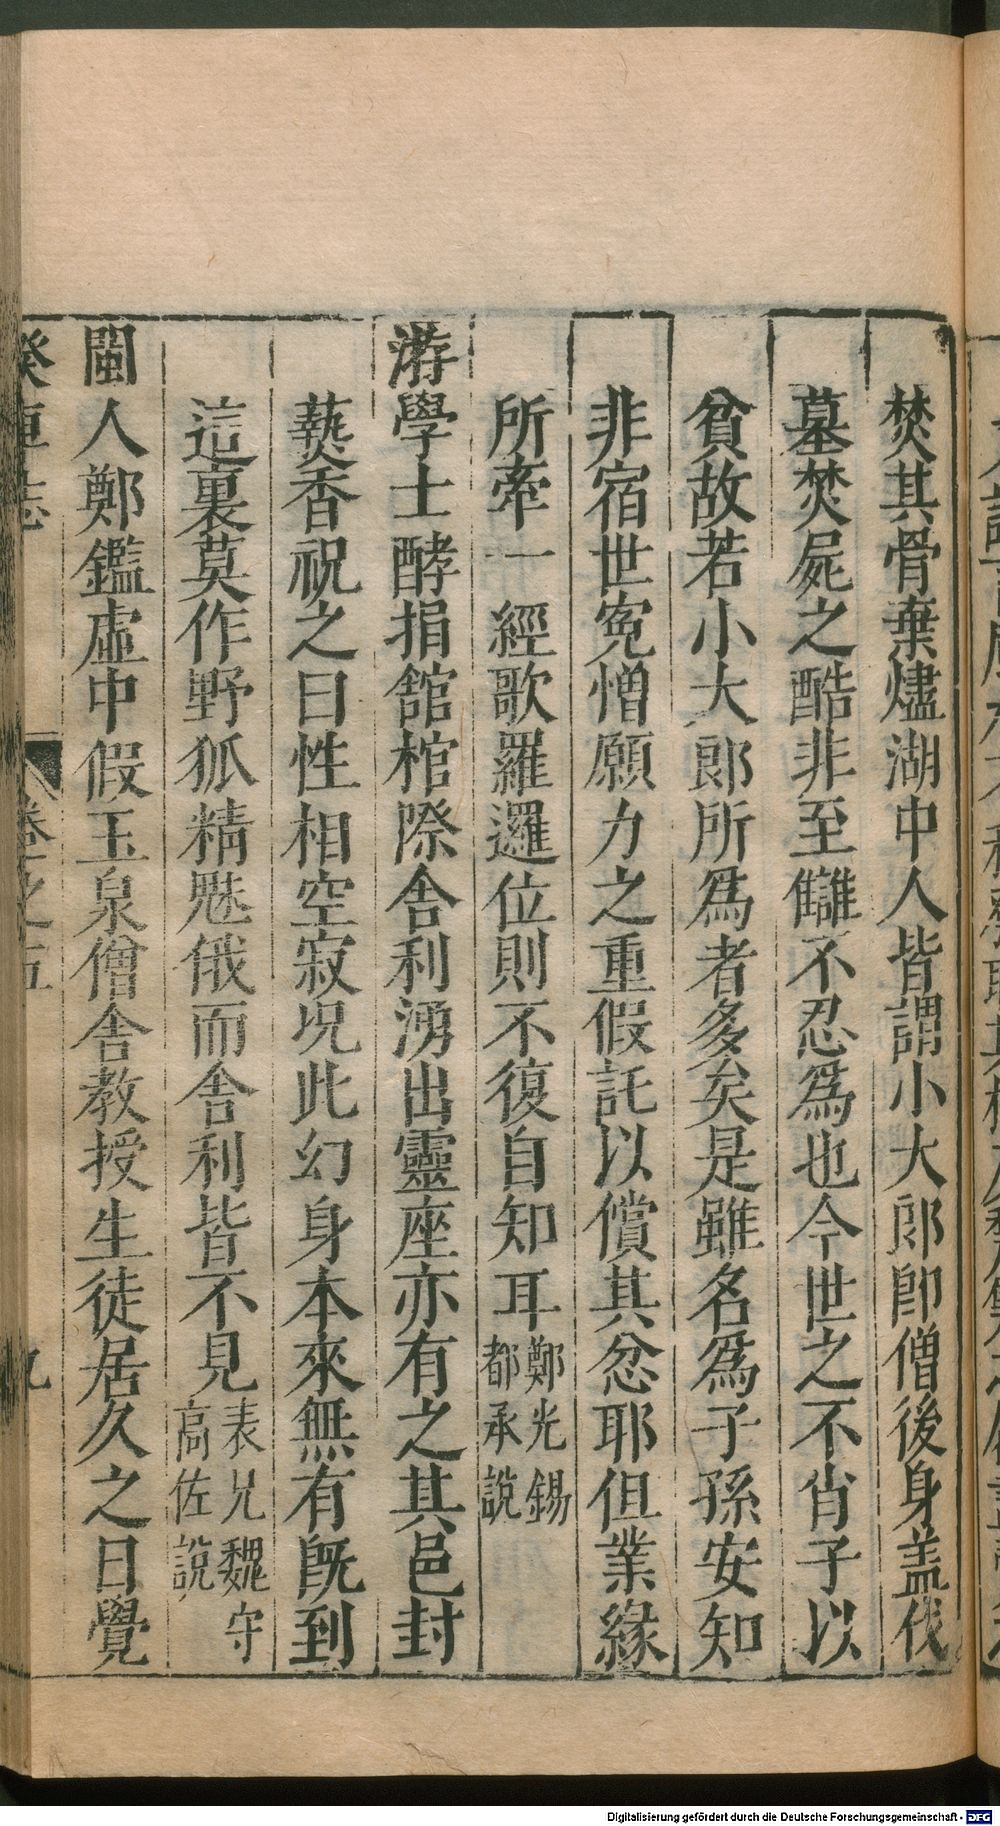 焚其骨棄燼湖中人皆謂小大郎卽僧後身盖伐
墓焚屍之酷非至讎不忍爲也今世之不肖子以
貧故若小大郎所爲者多矣是雖名爲子孫安知
非宿世寃憎願力之重假託以償其忿耶但業緣
所牽一經歌羅邏位則不復自知耳鄭光錫都承說
游學士酵捐館棺際舎利湧出靈座亦有之其邑封
爇香祝之曰性相空寂况此幻身本來無有旣到
這裏莫作野狐精魅俄而舎利皆不見表兄魏守高佐說
閩人鄭鑑虛中假玉泉僧舎教授生徒居久之日覺
睽車志 卷之五 九
Digitalisierung gefördert durch die Deutsche Forschungsgemeinschaft - DFG